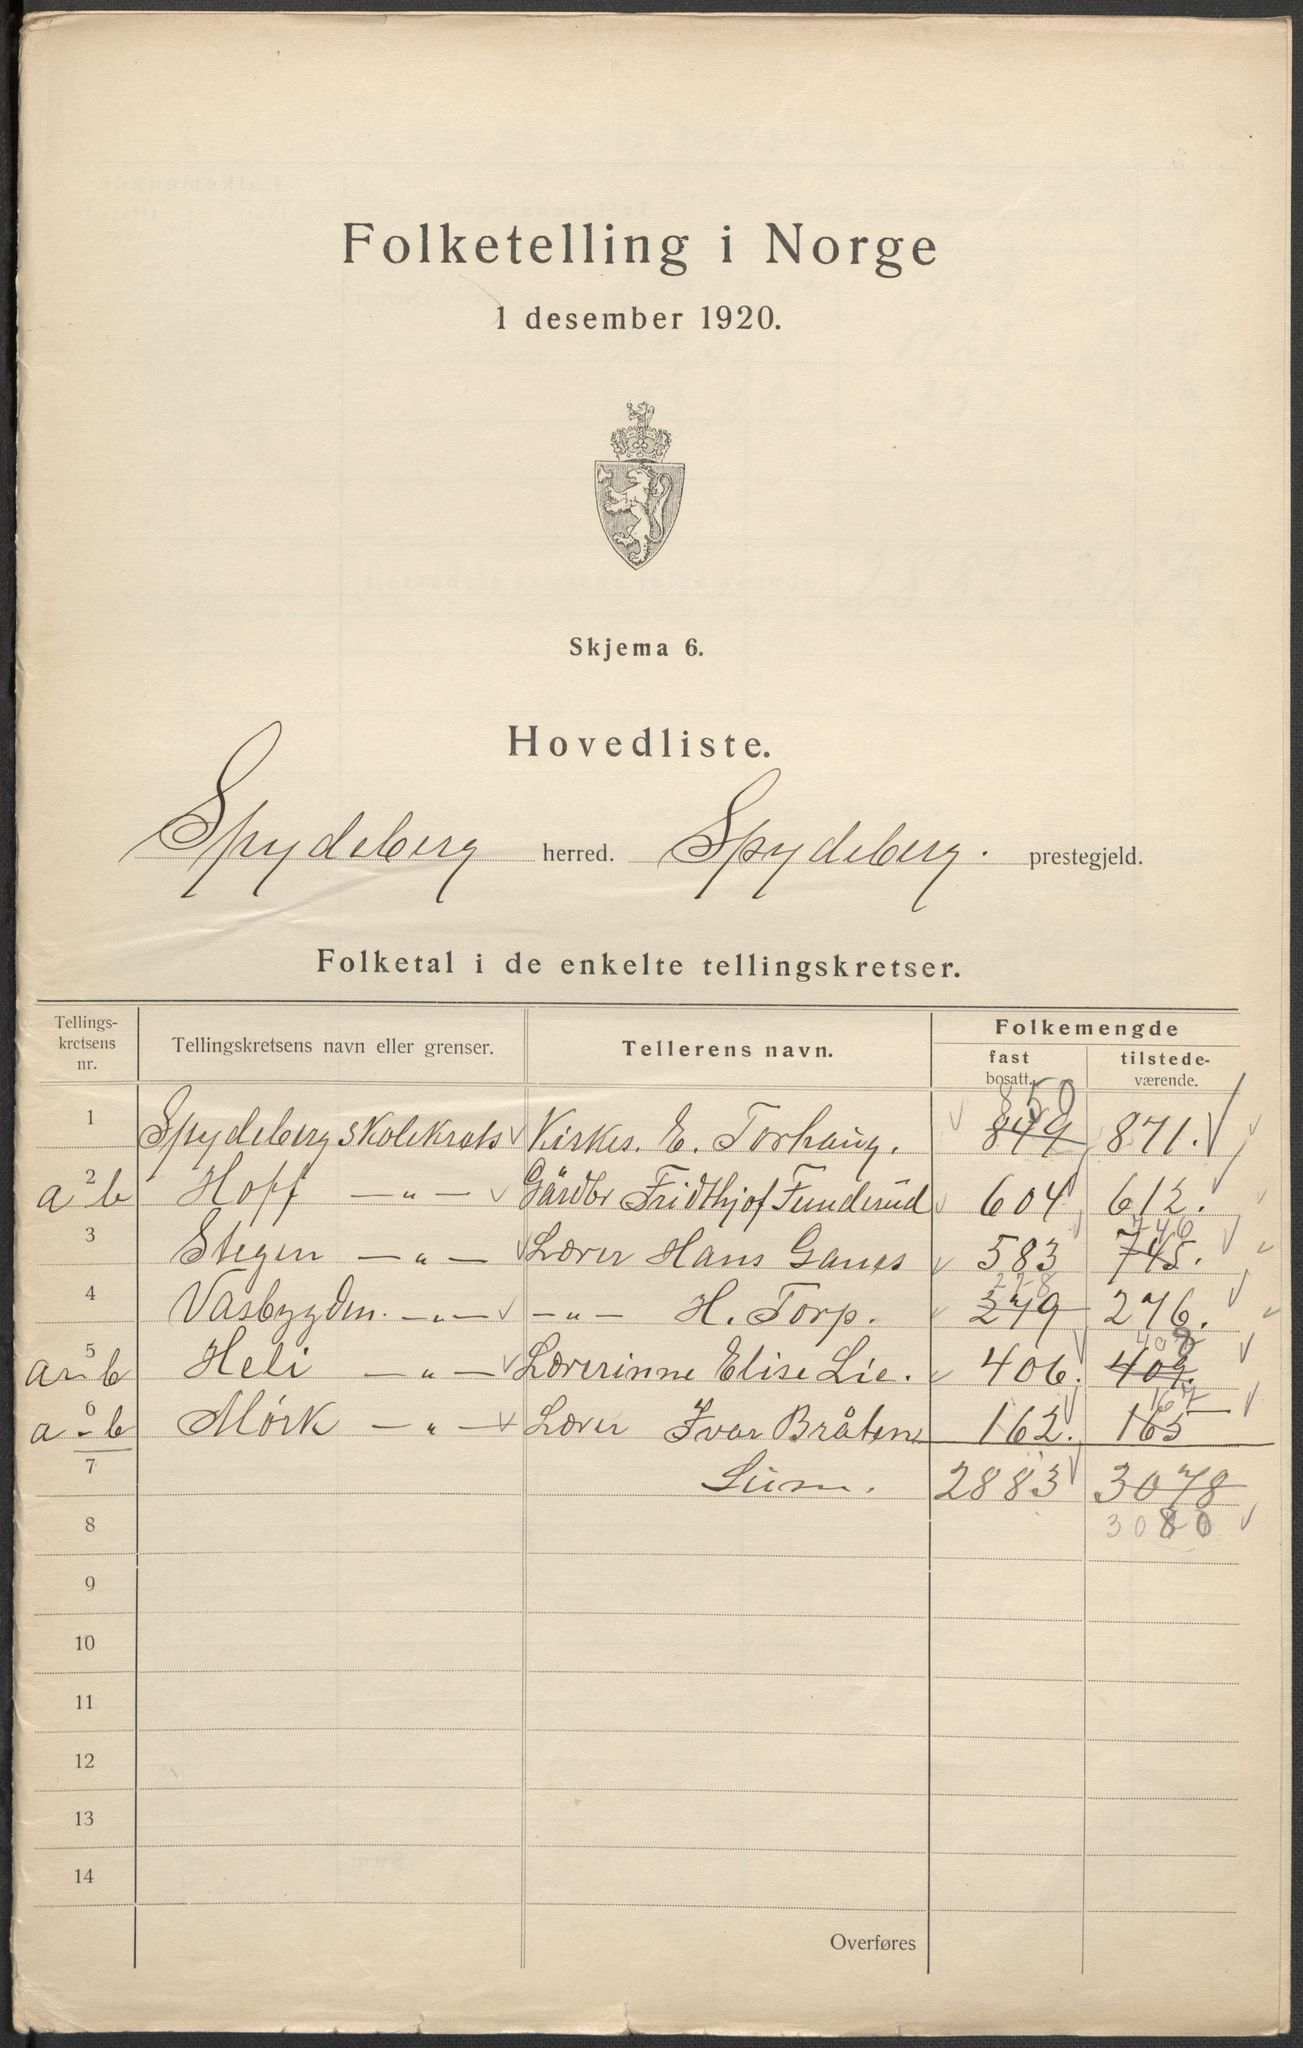 Folketelling i Norge
1 desember 1920.
Skjema 6.
Hovedliste.
Spydeberg herred. Spydeberg. prestegjeld.
Folketal i de enkelte tellingskretser.
Tellings-
kretsens
nr.
Tellingskretsens navn eller grenser.
Tellerens navn.
Folkemengde
fast
bosatt.
tilstede-
værende.
850
1 Spydeberg skolekrets Kirkes. E. Torhaug. 849 871.
a 2 b Hoff — „ — Gårdbr Fridthjof Funderud 604 612.
746
3 Stegen — „ — Lærer Hans Ganes 583 745.
278
4 Vasbygden. — „ — — „ — H. Torp. 279 276.
408
a 5 - b Heli — „ — Lærerinne Elise Lie. 406. 409.
167
a 6 - b Mørk — „ — Lærer Ivar Bråten 162. 165
7 Sum. 2883 3078
8 3080
9
10
11
12
13
14
Overføres